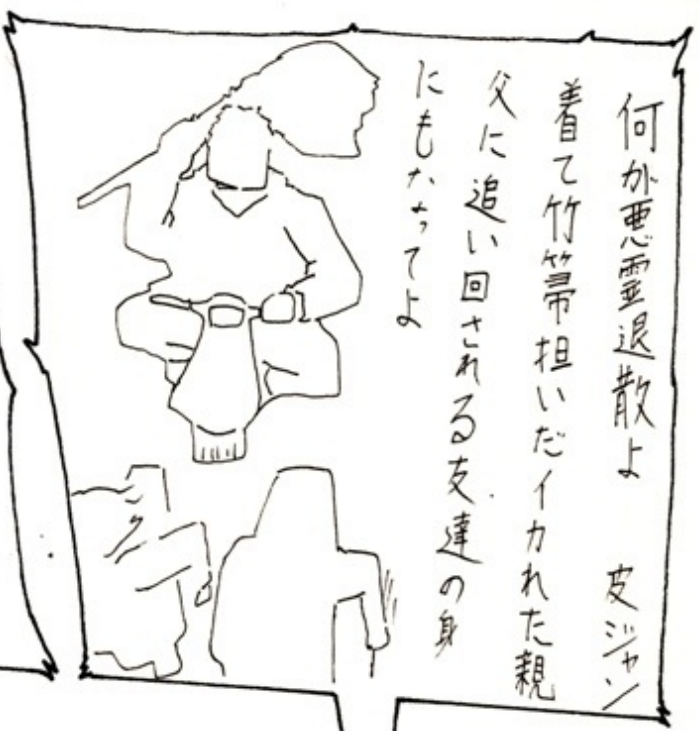 何が悪霊退散よ　皮ジャン
着て竹箒担いだイカれた親
父に追い回される友達の身
にもなってよ